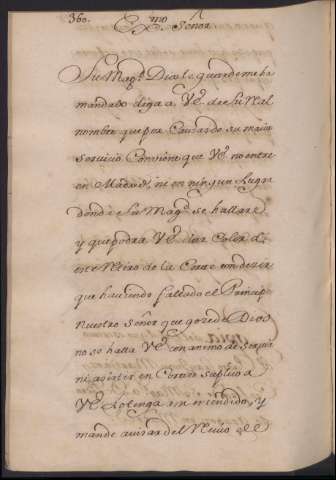 360. Ex.mo Señor
Su Mag.d Dios le guarde me ha
mandado diga a VE. de su Real
nombre que por causas de su maior
servicio conviene que VE. no entre
en Madrid, ni en ningun Lugar
donde Su Mag.d se hallare
y que podra VE. dar color a
este Retiro de la Corte con dezir
que haviendo faltado el Principe
nuestro señor que goze de Dios
no se halla VE. con animo de servir
ni asistir en Corte suplico a
VE. lo tenga entendido, y
mande avisar del Recivo de